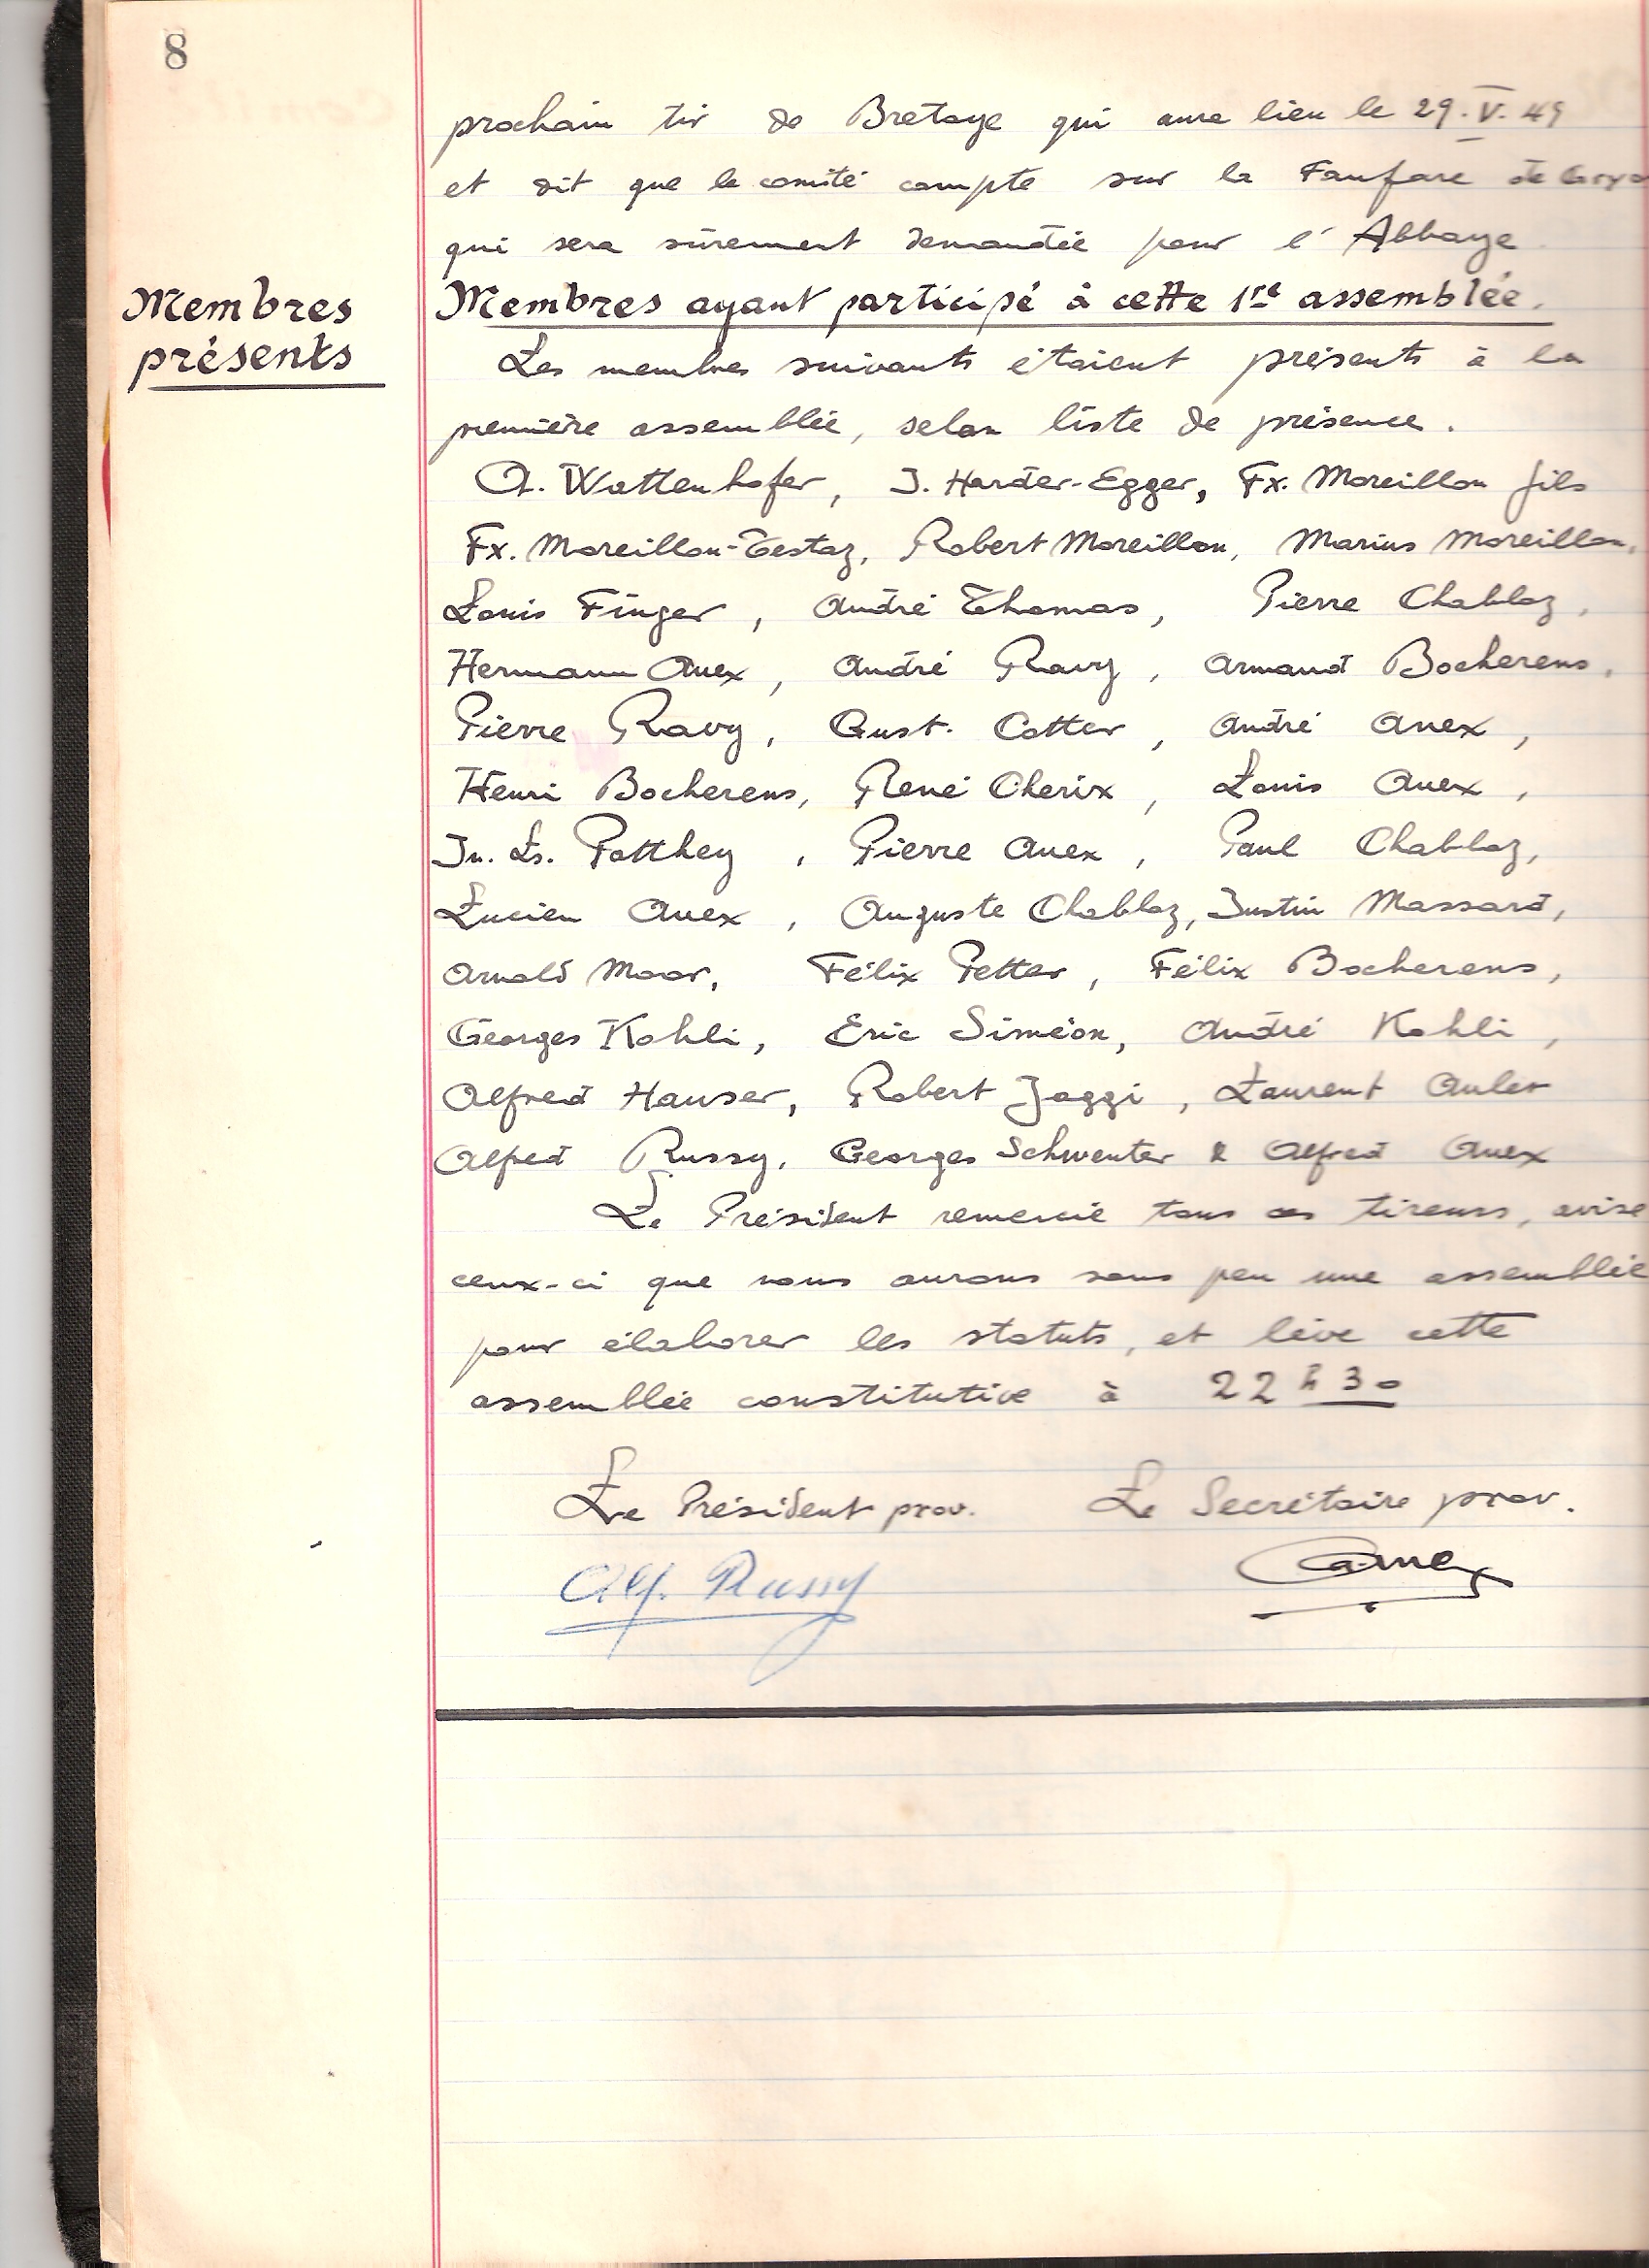 8
prochain tir de Bretaye qui aura lieu le 29.V.49
et dit que le comité compte sur la Fanfare de Gryo
qui sera sûrement demandée pour l'Abbaye
Membres
présents
Membres ayant participé à cette 1re assemblée.
Les membres suivants étaient présents à la
première assemblée, selon liste de présence.
A. Wattenhofer, J. Harder-Egger, Fx. Moreillon fils
Fx. Moreillon-Testaz, Robert Moreillon, Marius Moreillon,
Louis Finger, André Thomas, Pierre Chablaz,
Hermann Anex, André Ravy, Armand Bocherens,
Pierre Ravy, Gust. Cotter, André Anex,
Henri Bocherens, René Cherix, Louis Anex,
Jn. Ls. Patthey, Pierre Anex, Paul Chablaz,
Lucien Anex, Auguste Chablaz, Justin Massard,
Arnold Moor, Félix Petter, Félix Bocherens,
Georges Kohli, Eric Siméon, André Kohli,
Alfred Hauser, Robert Jaggi, Laurent Auler
Alfred Russy, Georges Schwenter & Alfred Anex
Le Président remercie tous ces tireurs, avise
ceux-ci que nous aurons sous peu une assemblée
pour élaborer les statuts, et lève cette
assemblée constitutive à 22 h 30
Le Président prov. Le Secrétaire prov.
Alf. Russy